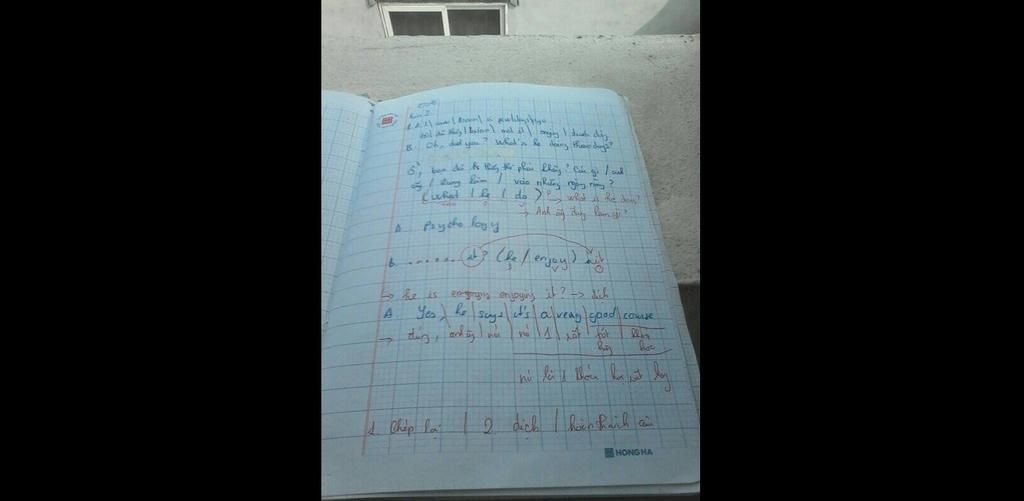 A. I saw Brian a few days ago
tôi đã thấy Brian một ít ngày trước đây
B. Oh, did you? What's he doing these days?
Ồ, bạn đã thấy phải không? Cái gì / anh
ấy / đang làm / vào những ngày này?
(what / he / do)? → what is he doing?
→ Anh ấy đang làm gì?
A. Psychology
B. ....... it? (he / enjoy) it
→ he is enjoying it? → dịch
A. Yes, he says it's a very good course
→ đúng, anh ấy nói nó 1 rất tốt khóa
học
nó là 1 khóa học rất hay
1. Chép lại / 2. dịch / hoàn thành câu
HONG HA